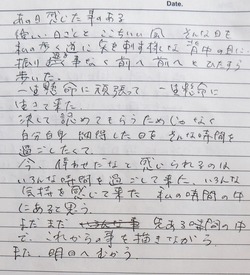 Date.
あの日感じた事のある
強い日ざと ここちいい風 そんな日を
私の歩く道に矢を刺す様な 背中の日に
振り返る事なく前へ前へとひたすら
歩いた。
一生懸命に頑張って 一生懸命に
生きて来た
決して認めてもらうためじゃなく
自分自身 納得した日を そんな時間を
過ごしたくて。
今、幸わせだなと感じられるのは
いろんな時間を過ごして来た、いろんな
気持を感じて来た 私の時間の中
にあると思う。
まだまだ 先ある時間の中
で、これからの事を描きながら
また、明日へむかう。